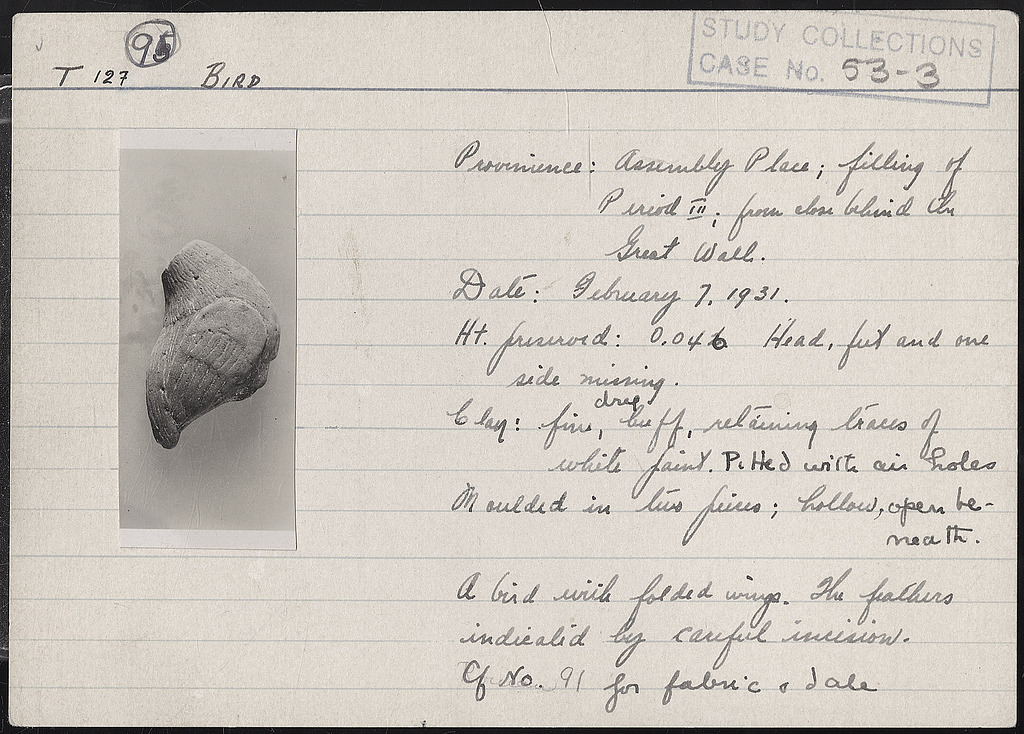 95
T 127 BIRD
STUDY COLLECTIONS
CASE No. 53-3
Provinience: Assembly Place; filling of
Period III; from close behind the
Great Wall.
Date: February 7, 1931.
Ht. preserved: 0.046 Head, feet and one
side missing.
deep
Clay: fine, buff, retaining traces of
white paint. Pitted with air holes
Moulded in two pieces; hollow, open be-
neath.
A bird with folded wings. The feathers
indicated by careful incision.
Cf No. 91 for fabric & date